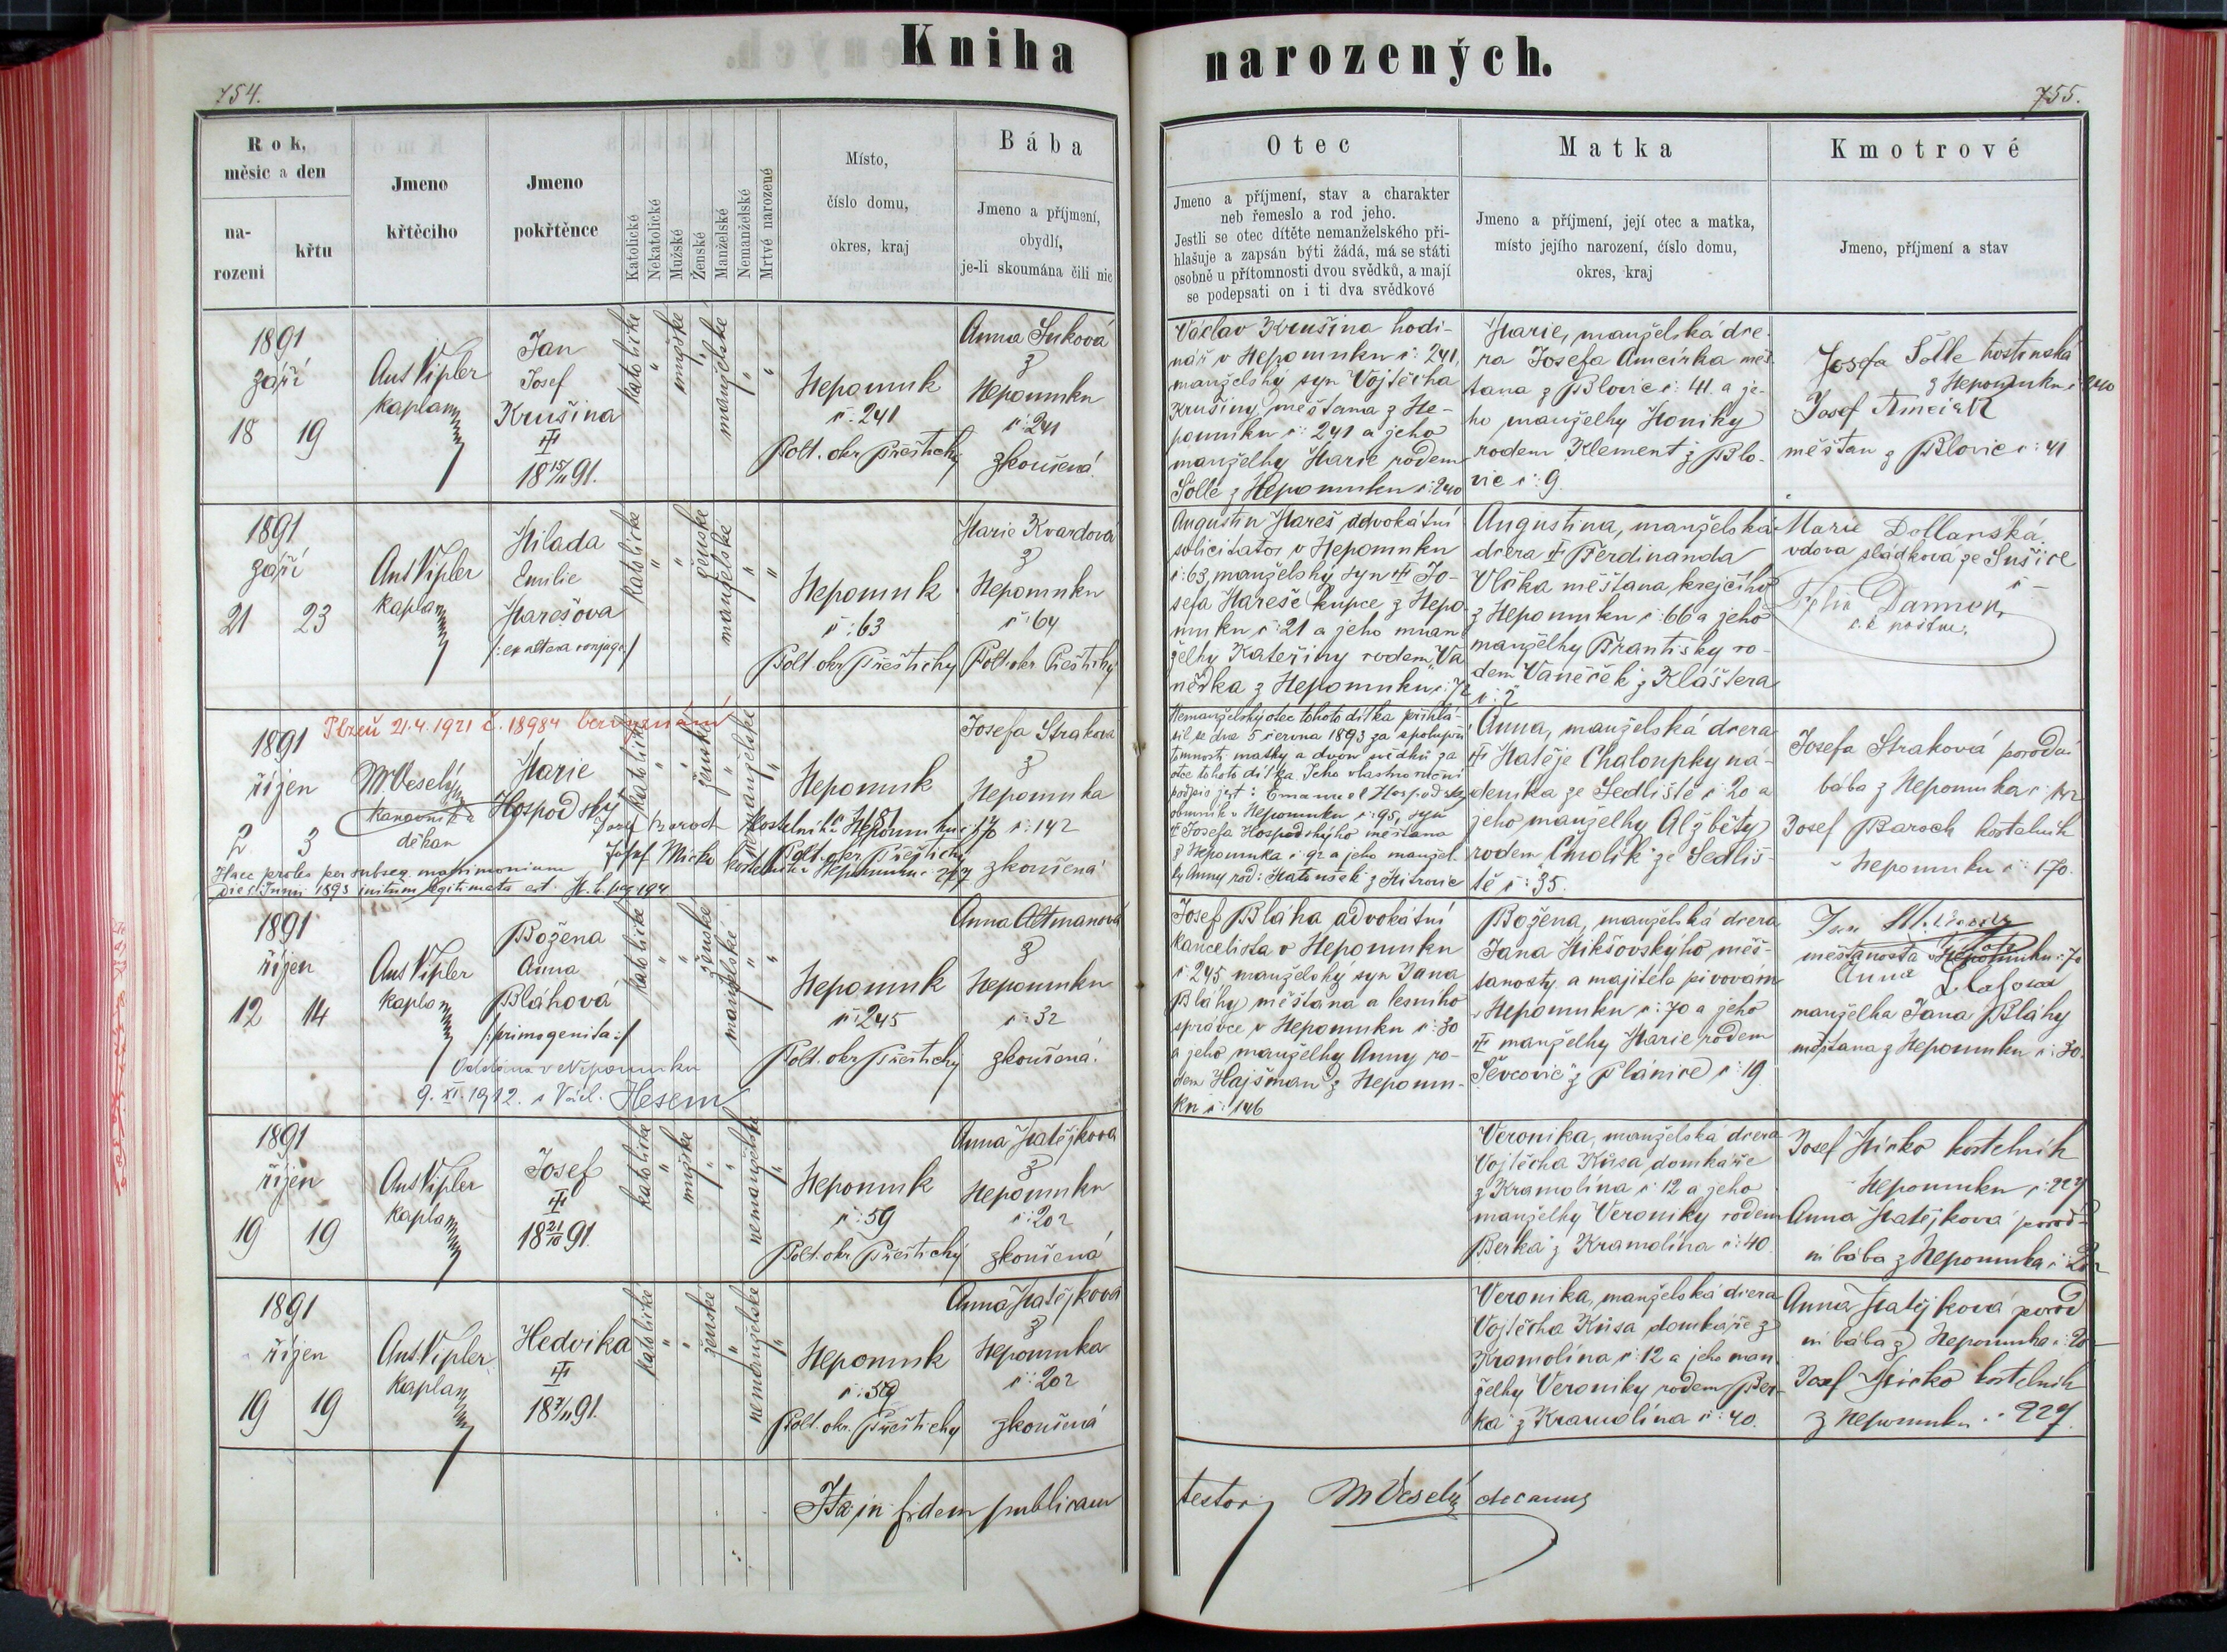 Kniha narozených.
754.
755.
Rok,
měsíc a den
na-
rození
křtu
Jmeno
křtěcího
Jmeno
pokřtěnce
Katolické
Nekatolické
Mužské
Ženské
Manželské
Nemanželské
Mrtvé narozené
Místo,
číslo domu,
okres, kraj
Bába
Jmeno a příjmení,
obydlí,
je-li skoumána čili nic
Otec
Jmeno a příjmení, stav a charakter
neb řemeslo a rod jeho.
Jestli se otec dítěte nemanželského při-
hlašuje a zapsán býti žádá, má se státi
osobně u přítomnosti dvou svědků, a mají
se podepsati on i ti dva svědkové
Matka
Jmeno a příjmení, její otec a matka,
místo jejího narození, číslo domu,
okres, kraj
Kmotrové
Jmeno, příjmení a stav
1891
září
18 19
Ant Vipler
kaplan
Jan
Josef
Krušina
18 15/11 91.
katolické
mužské
manželské
Nepomuk
č: 241
Polt. okr Přeštický
Anna Suková
z
Nepomuku
č: 241
zkoušená
Václav Krušina hodi-
nář v Nepomuku č: 241,
manželský syn Vojtěcha
Krušiny, měštana z Ne-
pomuku č: 241 a jeho
manželky Marie rodem
Šolle z Nepomuku č: 240
Marie, manželská dce-
ra Josefa Amcírka měš
tana z Blovic č: 41. a je-
ho manželky Moniky
rodem Klement z Blo-
vic č: 9.
Josefa Šolle hostinská
z Nepomuku č 240
Josef
měštan z Blovic č: 41
1891
září
21 23
Ant Vipler
kaplan
Milada
Emilie
Marešova
/: ex altera conjuge /
katolické
ženské
manželské
Nepomuk
č: 63
Polt okr Přeštický
Marie Kvardová
z
Nepomuku
č: 64
Polt. okr Přeštický
Augustin Mareš advokátní
solicitator v Nepomuku
č: 63, manželský syn Jo-
sefa Mareše kupce z Nepo
muku č: 21 a jeho man
želky Kateřiny rodem Va
něčka z Nepomuku č: 72
Augustina, manželská
dcera Ferdinanda
Vlčka měštana krejčího
z Nepomuku č: 66 a jeho
manželky Františky ro-
dem Vaněček z Kláštera
č: 2
Marie Dollanská
vdova sládková ze Sušice
Plzeň 21.4.1921 č. 18984 bez vyznání
1891
říjen
2 3
M Veselý
kanovník
děkan
Marie
Hospodský
katolické
ženské
nemanželské
Nepomuk
Polt. okr Přeštický
Josefa Straková
z
Nepomuka
č: 142
zkoušená
Josef Baroch kostelník v Nepomuku č: 170
Josef Mirko kostelník v Nepomuku č 227
Haec proles per subseq. matrimonium
die 5 Junii 1893 initum legitimata est. M. k. pag 194
Nemanželský otec tohoto dítka přihlá-
sil se dne 5 června 1893 za spolupří
tomnosti matky a dvou svědků za
otce tohoto dítka. Jeho vlastnoruční
podpis jest: Emanuel Hospodský
obuvník v Nepomuku č: 95, syn
Josefa Hospodského měštana
z Nepomuka č: 92 a jeho manžel.
ky Anny rod: Matoušek z Mitrovic
Anna, manželská dcera
Matěje Chaloupky ná-
deníka ze Sedliště č: 20 a
jeho manželky Alžběty
rodem Čmolík ze Sedliš-
tě č: 35.
Josefa Straková porodní
bába z Nepomuka č: 142
Josef Baroch kostelník
v Nepomuku č: 170.
1891
říjen
12 14
Ant Vipler
kaplan
Božena
Anna
Bláhová
/: primogenita :/
katolické
ženské
manželské
Nepomuk
č: 245
Polt. okr Přeštický
Anna Altmanová
z
Nepomuku
č: 32
zkoušená.
Oddána v Nepomuku
9. XI. 1912. s Václ. Hesem
Josef Bláha advokátní
kancelista v Nepomuku
č: 245 manželský syn Jana
Bláhy měštana a lesního
správce v Nepomuku č: 30
a jeho manželky Anny ro-
dem Hajšman z Nepomu-
ku č: 146
Božena, manželská dcera
Jana Mikšovského měš-
tanosty a majitele pivovaru
v Nepomuku č: 70 a jeho
manželky Marie rodem
Ševcovic z Plánice č: 19.
Jan
měštanosta v Nepomuku č: 70
Anna
manželka Jana Bláhy
měštana z Nepomuku č: 30.
1891
říjen
19 19
Ant Vipler
kaplan
Josef
18 21/10 91.
katolické
mužské
nemanželské
Nepomuk
č: 59
Polt. okr Přeštický
Anna Matějková
z
Nepomuku
č: 202
zkoušená
Veronika, manželská dcera
Vojtěcha Kůsa domkáře
z Kramolína č: 12 a jeho
manželky Veroniky rodem
Berka z Kramolína č: 40.
Josef Mirko kostelník
Nepomuku č: 227
Anna Matějková porod-
ní bába z Nepomuka č: 202
1891
říjen
19 19
Ant. Vipler
kaplan
Hedvika
18 7/11 91.
katolické
ženské
nemanželské
Nepomuk
č: 59
Polt. okr. Přeštický
Anna Matějková
z
Nepomuka
č: 202
zkoušená
Veronika, manželská dcera
Vojtěcha Kůsa domkáře z
Kramolína č: 12 a jeho man
želky Veroniky rodem Ber-
ka z Kramolína č: 40.
Anna Matějková porod
ní bába z Nepomuka č: 20
Josef Mirko kostelník
z Nepomuku č: 227.
Ita in fidem publicam
testor M Veselý decanus